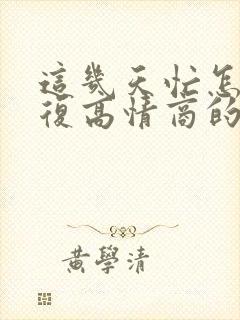 這幾天忙怎
復高情商的
黃學清